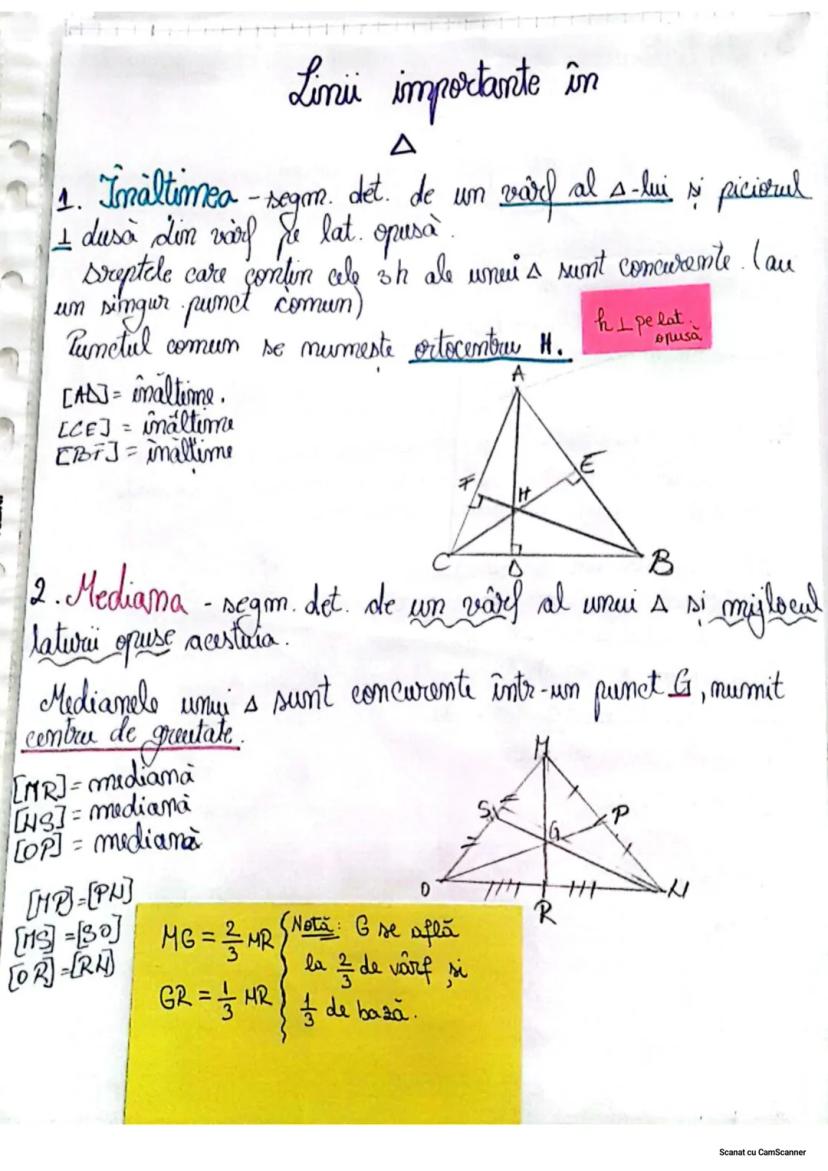 Linii importante în
Δ
1. Înălțimea - segm. det. de un vârf al Δ-lui și piciorul
⊥ dusă din vârf pe lat. opusă.
Dreptele care conțin cele 3h ale unui Δ sunt concurente. (au
un singur punct comun)
Punctul comun se numește ortocentru H.
h ⊥ pe lat.
opusă
[AD] = înălțime.
[CE] = înălțime
[BF] = înălțime
A
E
F
H
C
D
B
2. Mediana - segm. det. de un vârf al unui Δ și mijlocul
laturii opuse acestuia.
Medianele unui Δ sunt concurente într-un punct G, numit
centru de greutate.
[MR] = mediană
[NS] = mediană
[OP] = mediană
M
S
P
G
O
N
R
[MP]=[PN]
[MS]=[SO]
[OR]=[RN]
MG = 2/3 MR
GR = 1/3 MR
Notă: G se află
la 2/3 de vârf și
1/3 de bază.
Scanat cu CamScanner